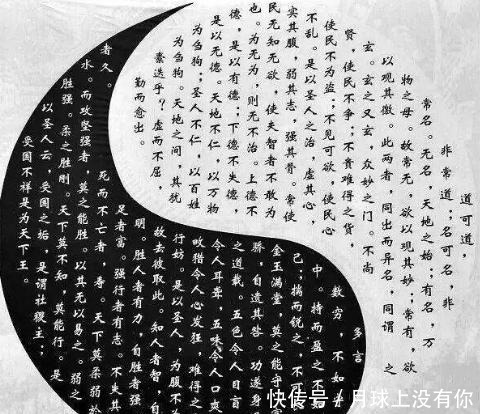 道可道，
非常道；名可名，非
常名。无名，天地之始；有名，万
物之母。故常无，欲以观其妙；常有，欲
以观其徼。此两者，同出而异名，同谓 之
玄。玄之又玄，众妙之门。不尚
贤，使民不争；不贵难得之货，
使民不为盗；不见可欲，使民心
不乱。是以圣人之治，虚其心，
实其腹，弱其志，强其骨。常使
民无知无欲，使夫智者不敢为
也。为无为，则无不治。上德不
德，是以有德；下德不失德，
是以无德。天地不仁，以万物
为刍狗；圣人不仁，以百姓
为刍狗。天地之间，其犹
迭乎？虚而不屈，
勤而愈出。
多言
数穷 不如
中。持而盈之不
已；揣而锐之，不可
金玉满堂，莫之能守
骄，自遗其咎。功遂身
之道载。五色令人目盲
令人耳聋，五味令人口爽
畋猎令人心发狂，难得之
行妨。是以圣人，为腹不为
故去彼取此。知人者智，自
明。胜人者有力，自胜者强
足者富。强行者有志。不失其
者久。 死而不亡者 寿。天下莫柔弱於
水。而攻坚强者，莫之能胜。以其无以易之。弱之
胜强。柔之胜刚。天下莫不知，莫能行。是
以圣人云，受国之垢，是谓社稷主，
受国不祥是为天下王。
快传号 / 月球上没有你